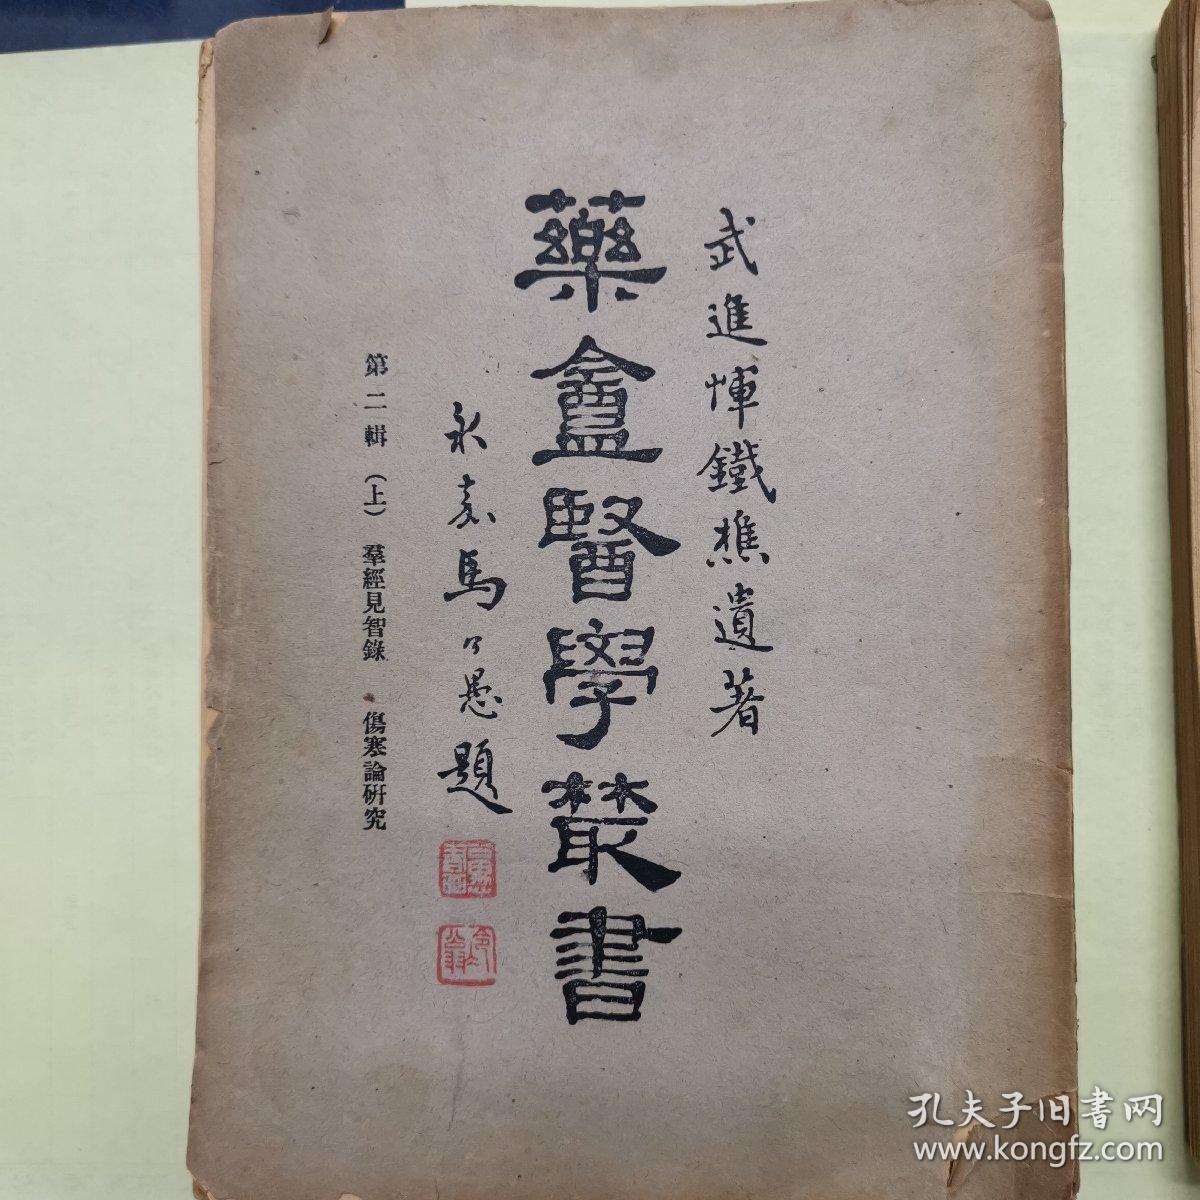 武進惲鐵樵遺著
藥盦醫學叢書
永嘉馬公愚題
第二輯（上） 羣經見智錄 傷寒論研究
孔夫子旧书网
www.kongfz.com